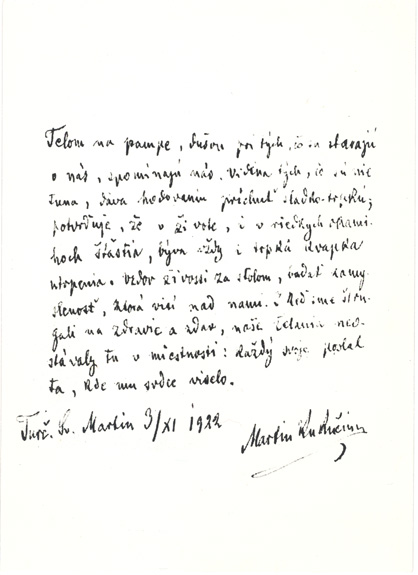 Telom na pampe, dušou pri tých, čo sa starajú
o nás, spomínajú nás. Vidina tých, čo sú nie
tuna, dáva hodovaniu príchuť sladko-trpkú;
potvrdzuje, že v živote, i v riedkych okami-
hoch šťastia, býva vždy i trpká kvapka
utrpenia. Vzdor živosti za stolom, badať zamy-
slenosť, ktorá visí nad nami. I keď sme štrn-
gali na zdravie a zdar, naše želania neo-
stávaly tu v miestnosti: každý svoje poslal
ta, kde mu srdce viselo.
Turč. Sv. Martin 3/XI 1922
Martin Kukučín